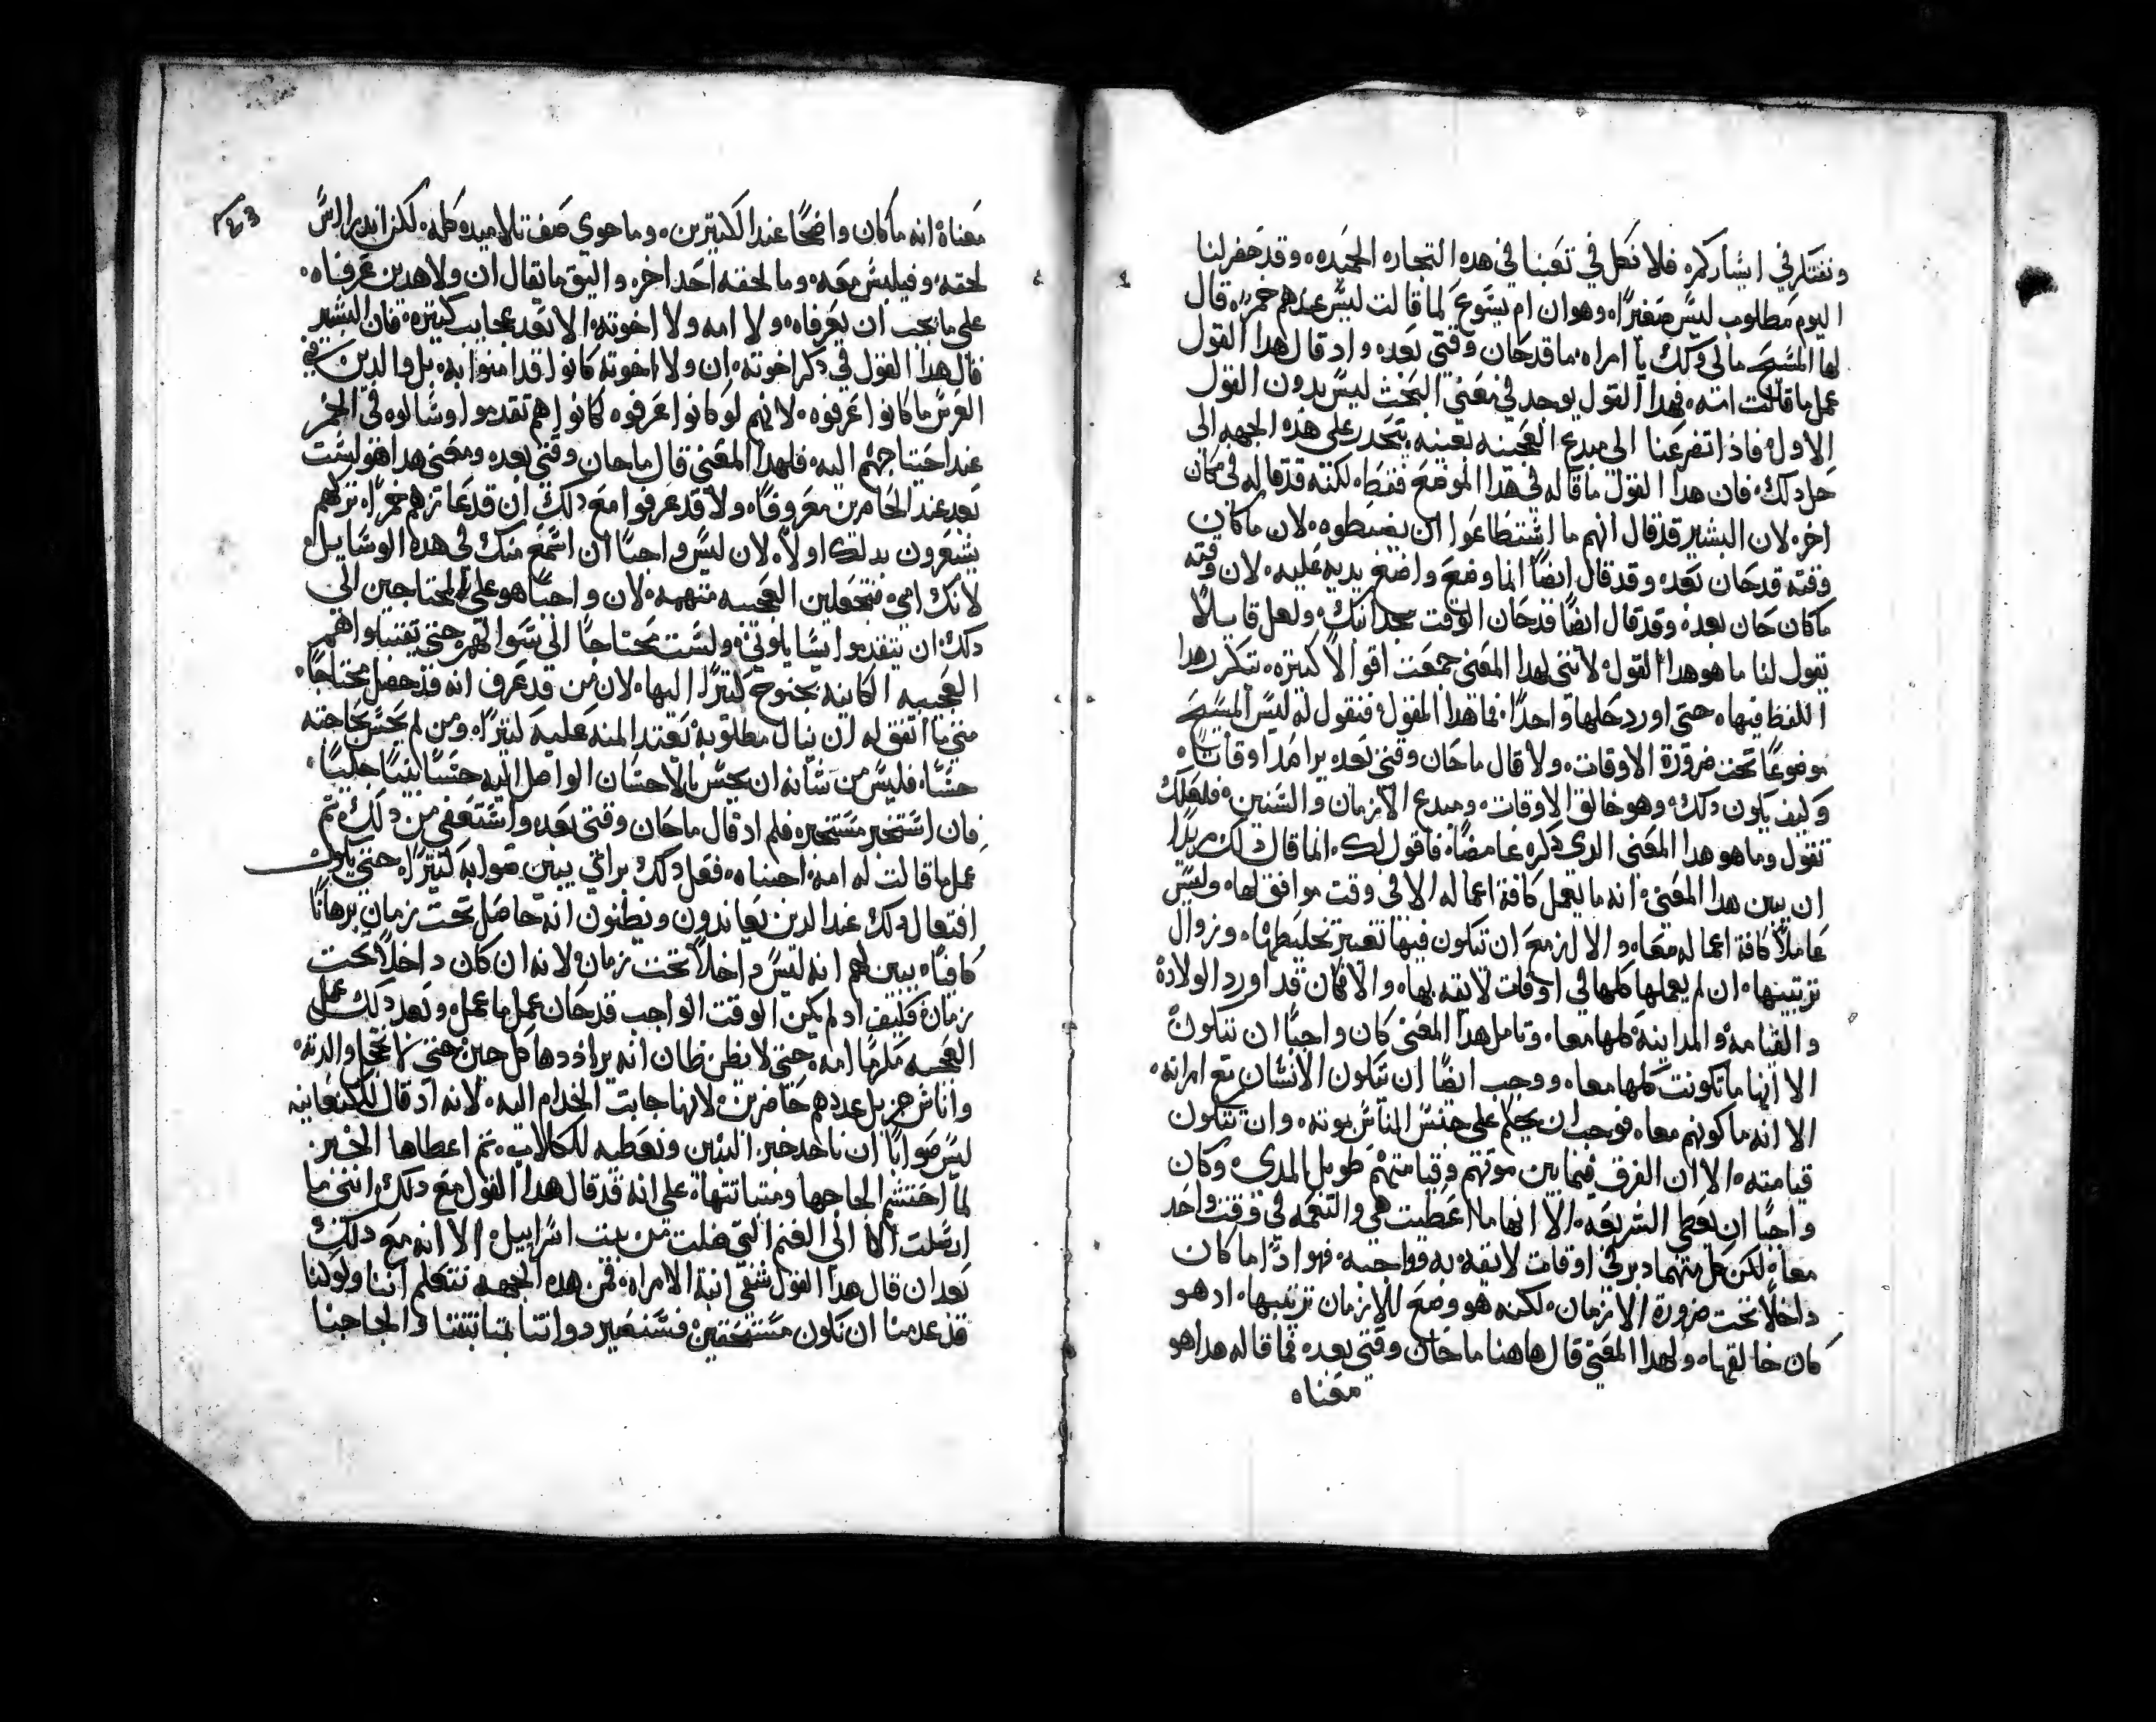 ونفتكر في ايشاركم فلا نكل في تعبنا في هده التجاره الحميده وقد حضر لنا
اليوم مطلوب ليس صغيرًا وهو ان ام يسوع لما قالت ليس عندهم خمر قال
لها المسيح مالي ولك يا امراه ما قد حان وقتي بعد واد قال هدا القول
عمل ما قالت امه فهدا القول يوجد في معني البحث ليس بدون القول
الاول فاذا تضرعنا الى مبدع العجيبه بعينه نتحدر على هذه الجهه الى
حل دلك فان هدا القول ما قاله في هدا الموضع فقط لكنه قد قاله في مكان
اخر لان البشير قد قال انهم ما استطاعوا ان يضبطوه لان ما كان
وقته قد حان بعد وقد قال ايضًا انما وضع واضع يديه عليه لان وقته
ما كان حان بعد وقد قال ايضًا قد حان الوقت مجد ابنك ولعل قايلًا
يقول لنا ما هو هدا القول لانني لهدا المعني جمعت اقوالًا كثيره تتكرر هدا
اللفظ فيها حتى اورد حلها واحدًا فما هدا القول فنقول له ليس المسيح
موضوعًا تحت ضرورة الاوقات ولا قال ما حان وقتي بعد مراصدًا اوقاتًا
وكيف يكون دلك وهو خالق الاوقات ومبدع الازمان والسنين فلعلك
تقول وما هو هدا المعني الدي دكره غامضًا فاقول لك انما قال دلك مريدًا
ان يبين هدا المعني انه ما يعمل كافة اعماله الا في وقت موافق لها وليس
عاملًا كافة اعماله معًا والا لزمع ان تكون فيها تغيير تخليطها وزوال
ترتيبها ان لم يعملها كلها في اوقات لايقه بها والا فكان قد اورد الولادة
والقيامة والمداينة كلها معا وتامل هدا المعني كان واجبًا ان تتكون
الا انها ما تكونت كلها معا ووجب ايضًا ان يتكون الانسان مع امراته
الا انه ما كونهم معا فوجب ان يحكم على جنس الناس بموته وان تتكون
قيامته الا ان الفرق فيما بين موتهم وقيامتهم طويل المدى وكان
واجبًا ان يعطى الشريعه الا انها ما اعطيت هي والنعمه في وقت واحد
معا لكن كل منهما دبر في اوقات لايقه به وواجبه فهو ادًا ما كان
داخلًا تحت ضرورة الازمان لكنه هو وضع للازمان ترتيبها اد هو
كان خالقها ولهدا المعني قال هاهنا ما حان وقتي بعد فما قاله هدا هو
معناه
معناه انه ما كان واضحًا عند الكثيرين وما حوي صف تلاميده كله لكن اندراوس
لحقه وفيلبس معه وما لحقه احد اخر واليق ما يقال ان ولا هدين عرفاه
على ما يجب ان يعرفاه ولا امه ولا اخوته الا بعد عجايب كثيره فان البشير
قال هدا القول في دكر اخوته ان ولا اخوته كانوا قد امنوا به بل والدين في
العرس ما كانوا عرفوه لانهم لو كانوا عرفوه لكانوا هم تقدموا وسالوه في الخمر
عند احتياجهم اليه فلهدا المعني قال ما حان وقتي بعد ومعني هدا هو لست
بعد عند الحاضرين معروفًا ولا قد عرفوا مع دلك ان قد عازهم خمرًا تركهم
يشعرون بدلك اولًا لان ليس واجبًا ان اسمع منك في هده الوسايل
لانك امي فتجعلين العجيبه متهمه لان واجبًا هو على المحتاجين الى
دلك ان يتقدموا يسايلوني ولست محتاجًا الى سوالهم حتى يقتبلوا هم
العجيبه الكاينه بجنوح كثيرًا اليها لان من قد عرف انه قد حصل محتاجًا
متي ما اتفق له ان ينال مطلوبه يعتد المنه عليه كثيرًا ومن لم يحس بحاجته
حسًا فليس من شانه ان يحس بالاحسان الواصل اليه حسًا بينًا جليًا
فان استخبر مستخبر فلم اد قال ما حان وقتي بعد واستعفى من دلك ثم
عمل ما قالت له امه اجبناه فعل دلك براي يبين صوابه كثيرًا حتى يكون
افتعال دلك عند الدين يعاندون ويظنون انه حاصل تحت زمان برهانًا
كافيًا يبين لهم انه ليس داخلًا تحت زمان لانه ان كان داخلًا تحت
زمان فكيف اد لم يكن الوقت الواجب قد حان عمل ما عمل وبعد دلك عمل
العجيبه مكرمًا امه حتى لا يظن ظان انه يرادها كل حين حتى لا يخجل والدته
واناس جزيل عددهم حاضرين لانها جابت الخدام اليه لانه اد قال للكنعانيه
ليس صوابًا ان ناخد خبز البنين ونعطيه للكلاب ثم اعطاها الخبز
لما احتشم الحاحها ومثابتتها على انه قد قال هدا القول مع دلك انني ما
ارسلت الا الى الغنم التي ضلت من بيت اسراييل الا انه مع دلك
بعد ان قال هدا القول شفى ابنة الامراه فمن هده الجهه نتعلم اننا ولو كنا
قد عدمنا ان نكون مستحقين فسنصير دواتنا بمثابتتنا والحاجنا